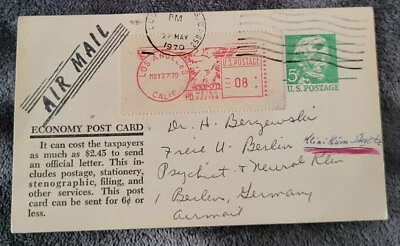 PM
27 MAY
1970
AIR MAIL
LOS ANGELES
MAY 27'70
CALIF
U.S. POSTAGE
08
5¢
U.S. POSTAGE
ECONOMY POST CARD
It can cost the taxpayers
as much as $2.45 to send
an official letter. This in-
cludes postage, stationery,
stenographic, filing, and
other services. This post
card can be sent for 6¢ or
less.
Dr. H. Berzewski
Freie U. Berlin
Psychiat & Neurol Klin
1 Berlin, Germany
airmail